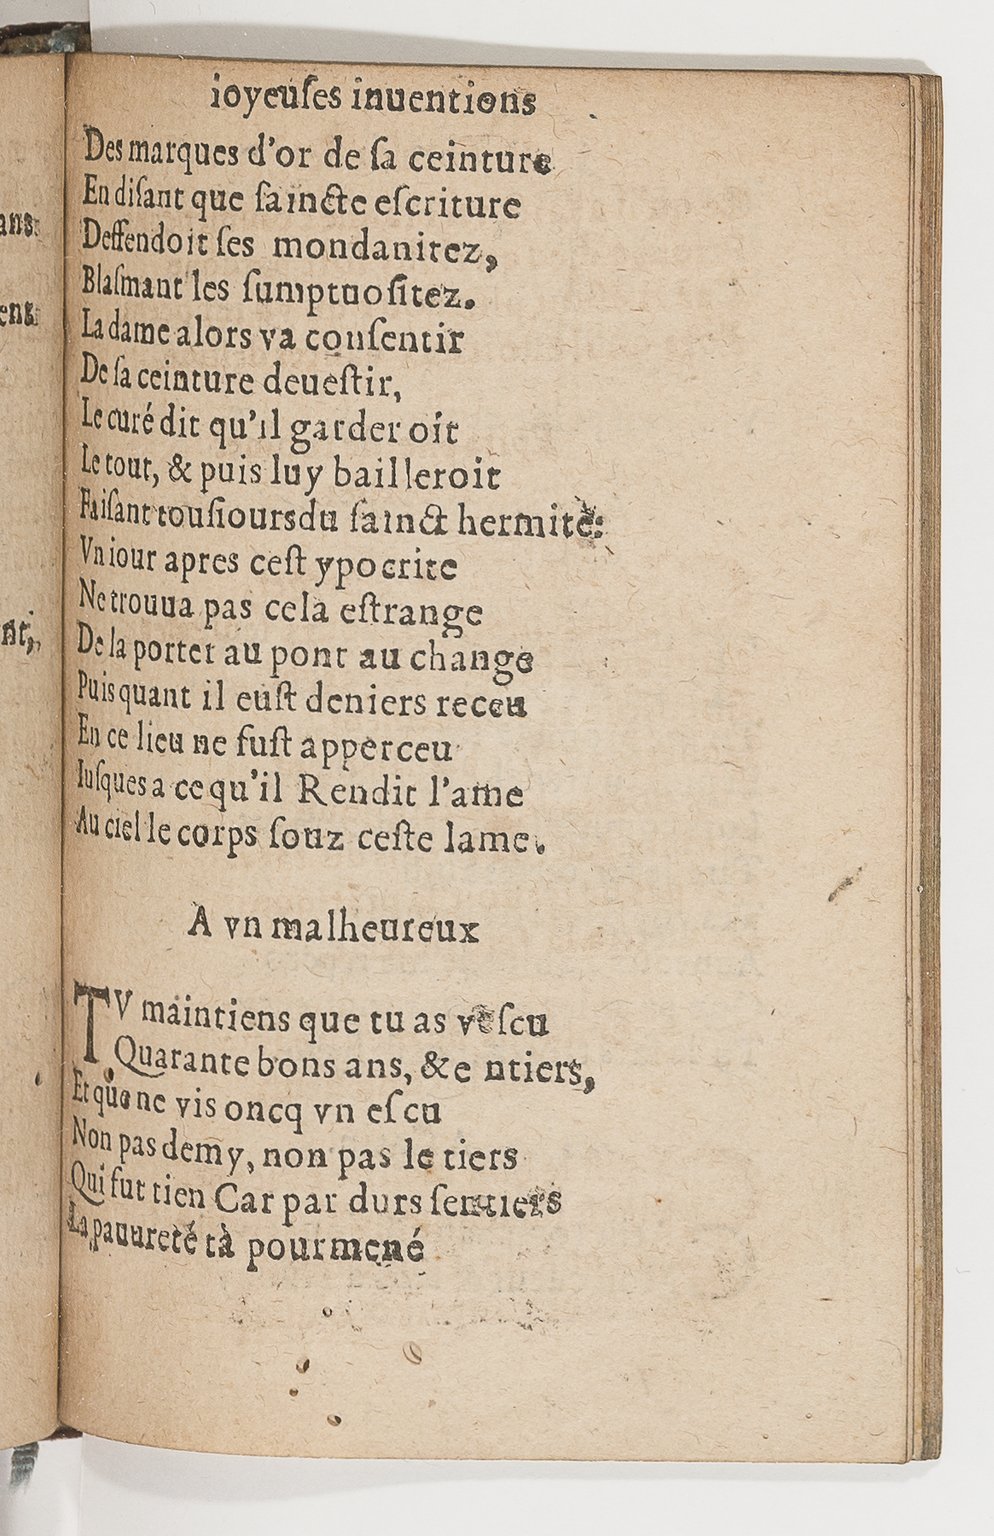 ioyeuſes inuentions
Des marques d'or de ſa ceinture
En diſant que ſaincte eſcriture
Deffendoit ſes mondanitez,
Blaſmant les ſumptuoſitez.
La dame alors va conſentir
De ſa ceinture deueſtir,
Le curé dit qu'il garderoit
Le tout, & puis luy bailleroit
Faiſant touſiours du ſainct hermite:
Vn iour apres ceſt ypocrite
Ne trouua pas cela eſtrange
De la porter au pont au change
Puis quant il euſt deniers receu
En ce lieu ne fuſt apperceu
Iuſques a ce qu'il Rendit l'ame
Au ciel le corps ſouz ceſte lame.
A vn malheureux
TV maintiens que tu as veſcu
Quarante bons ans, & e ntiers,
Et que ne vis oncq vn eſcu
Non pas demy, non pas le tiers
Qui fut tien Car par durs ſentiers
La pauureté tà pourmené
ans.
ens.
nt,